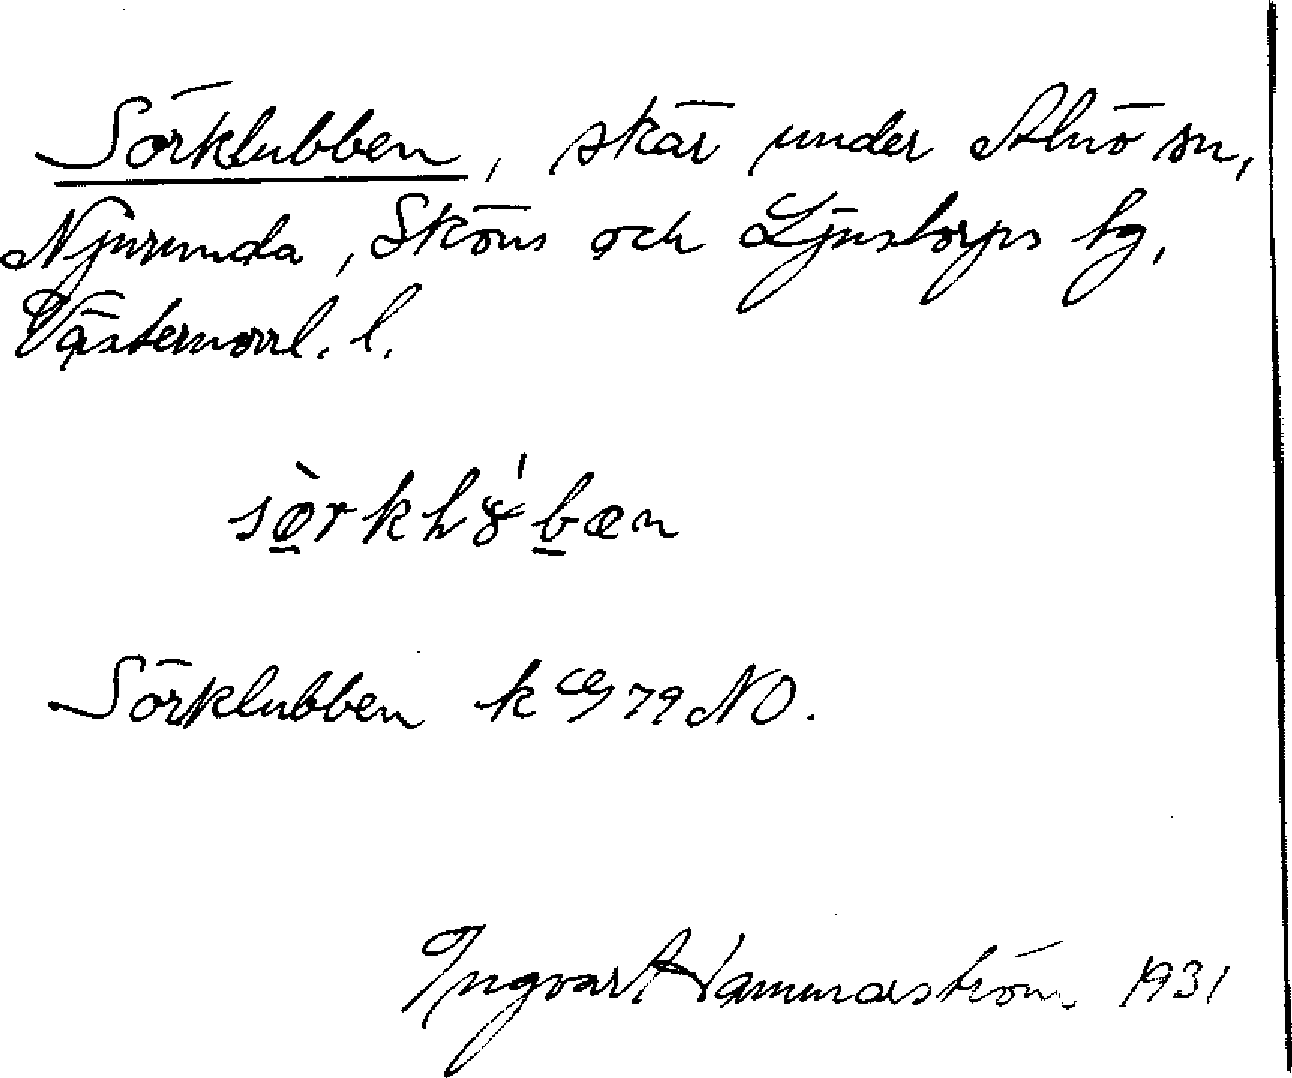 Sörklubben, skär under Alnö sn,
Njurunda, Sköns och Ljustorps tg,
Västernorrl. l.
Sörklubben k 79 NO.
Ingvar Hammarström 1931